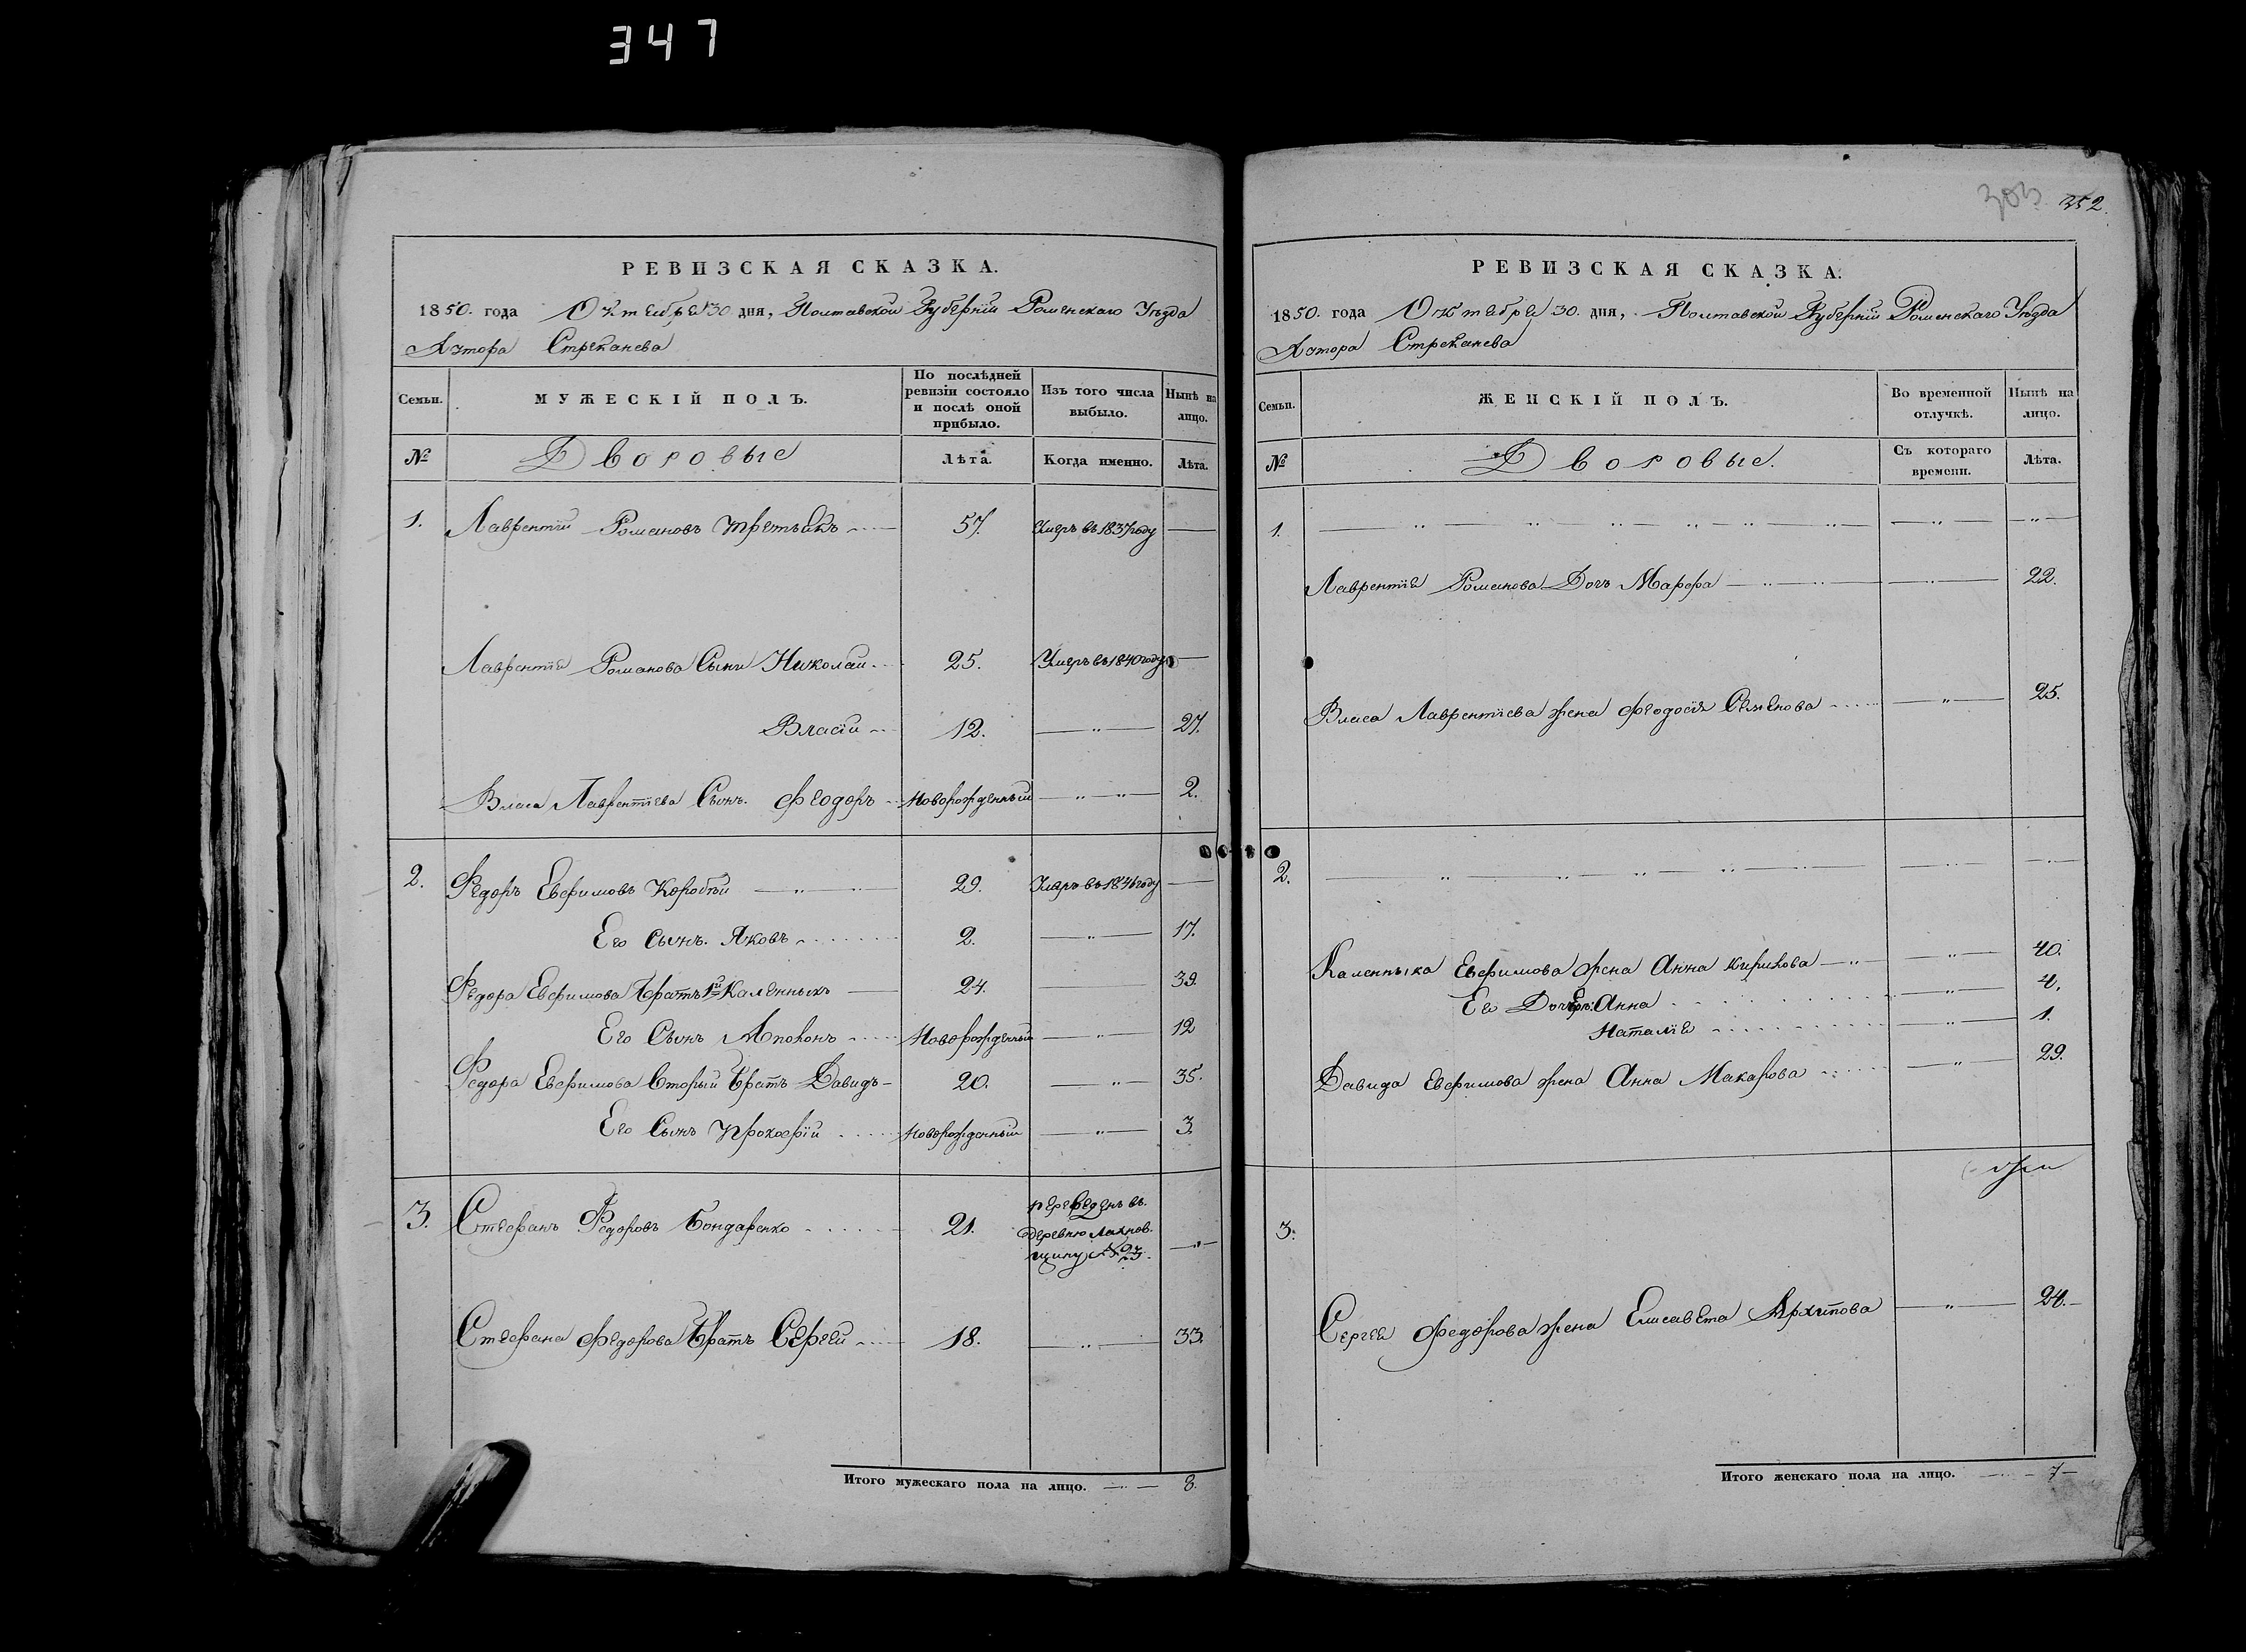 347
РЕВИЗСКАЯ СКАЗКА.
1850. года Октября 30 дня, Полтавской Губерніи Роменскаго Уѣзда
Хутора Стреканева
Семьи.
МУЖЕСКІЙ ПОЛЪ.
По послѣдней ревизіи состояло и послѣ оной прибыло.
Изъ того числа выбыло.
Нынѣ на лицо.
№
Дворовые
Лѣта.
Когда именно.
Лѣта.
1. Лаврентій Романовъ Третьякъ 57. Умеръ въ 1837 году
Лаврентія Романова Сыны Николай 25. Умеръ въ 1840 году
Власій 12. 27.
Власа Лаврентіева Сынъ. Феодоръ Новорожденный 2.
2. Федоръ Евфимовъ Коробій 29. Умеръ въ 1846 году
Его Сынъ. Яковъ 2. 17.
Федора Евфимова Братъ 1й Каленныкъ 24. 39.
Его Сынъ Новорожденный 12
Федора Евфимова Вторый Братъ Давидъ 20. 35.
Его Сынъ Прокофій Новорожденный 3.
3. Стефанъ Федоровъ Бондаренко 21. переведенъ въ
деревню Лахнов.
щину №23.
Стефана Федорова Братъ Сергей 18. 33.
Итого мужескаго пола на лицо. 8.
303 352.
РЕВИЗСКАЯ СКАЗКА.
1850. года Октября 30. дня, Полтавской Губерніи Роменскаго Уѣзда
Хутора Стреканева
Семьи.
ЖЕНСКІЙ ПОЛЪ.
Во временной отлучкѣ.
Нынѣ на лицо.
№
Дворовые.
Съ котораго времени.
Лѣта.
1.
Лаврентія Романова Дочь Марфа 22.
Власа Лаврентіева жена Феодосія Семенова 25.
2.
Каленныка Евфимова жена Анна Кирилова 40.
Его Дочери: Анна 4.
Наталія 1.
Давида Евфимова жена Анна Макарова 29.
3.
Сергея Федорова жена Елисавета Архипова 24.
Итого женскаго пола на лицо. 7